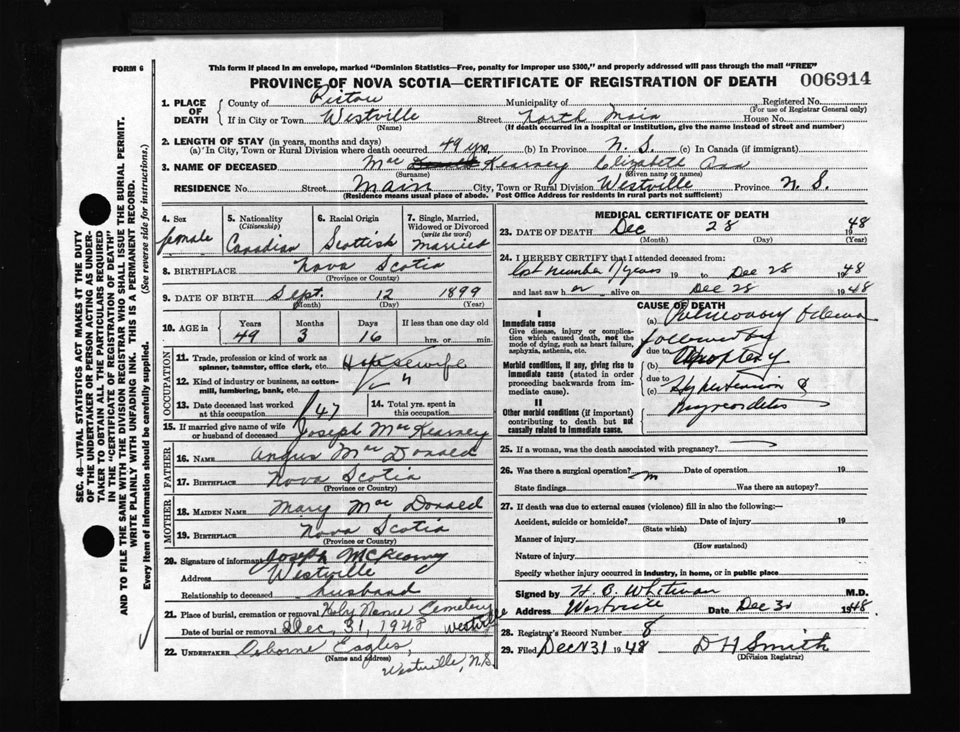 FORM 6
This form if placed in an envelope, marked "Dominion Statistics—Free, penalty for improper use $300," and properly addressed will pass through the mail "FREE"
PROVINCE OF NOVA SCOTIA—CERTIFICATE OF REGISTRATION OF DEATH 006914
1. PLACE OF DEATH County of Pictou Municipality of Registered No. (For use of Registrar General only)
If in City or Town Westville (Name) Street North Main House No.
(If death occurred in a hospital or institution, give the name instead of street and number)
2. LENGTH OF STAY (in years, months and days)
(a) In City, Town or Rural Division where death occurred 49 yrs. (b) In Province N. S. (c) In Canada (if immigrant)
3. NAME OF DECEASED Mac Donald Kearney (Surname) Elizabeth Ann (Given name or names)
RESIDENCE No. Street Main City, Town or Rural Division Westville Province N. S.
(Residence means usual place of abode. Post Office Address for residents in rural parts not sufficient)
4. Sex female
5. Nationality (Citizenship) Canadian
6. Racial Origin Scottish
7. Single, Married, Widowed or Divorced (write the word) Married
8. BIRTHPLACE Nova Scotia
(Province or Country)
9. DATE OF BIRTH Sept. (Month) 12 (Day) 1899 (Year)
10. AGE in Years 49 Months 3 Days 16 If less than one day old hrs. or min.
OCCUPATION
11. Trade, profession or kind of work as spinner, teamster, office clerk, etc. Housewife
12. Kind of industry or business, as cotton-mill, lumbering, bank, etc. "
13. Date deceased last worked at this occupation 47
14. Total yrs. spent in this occupation
15. If married give name of wife or husband of deceased Joseph MacKearney
FATHER
16. NAME Angus Mac Donald
17. BIRTHPLACE Nova Scotia
(Province or Country)
MOTHER
18. MAIDEN NAME Mary Mac Donald
19. BIRTHPLACE Nova Scotia
(Province or Country)
20. Signature of informant Joseph McKearney
Address Westville
Relationship to deceased husband
21. Place of burial, cremation or removal Holy Name Cemetery
Date of burial or removal Dec. 31, 1948 Westville
22. UNDERTAKER Osborne Eagles,
(Name and address)
Westville, N.S.
MEDICAL CERTIFICATE OF DEATH
23. DATE OF DEATH Dec 28 1948
(Month) (Day) (Year)
24. I HEREBY CERTIFY that I attended deceased from:
last number years 19 to Dec 28 1948
and last saw her alive on Dec 28 1948
CAUSE OF DEATH
I
Immediate cause
Give disease, injury or complication which caused death, not the mode of dying, such as heart failure, asphyxia, asthenia, etc.
(a) Pulmonary Edema
followed by
due to
(b) Apoplexy
Morbid conditions, if any, giving rise to immediate cause (stated in order proceeding backwards from immediate cause).
due to
(c) Hypertension &
Myocarditis
II
Other morbid conditions (if important) contributing to death but not causally related to immediate cause.
25. If a woman, was the death associated with pregnancy?
26. Was there a surgical operation? Date of operation 19
State findings Was there an autopsy?
27. If death was due to external causes (violence) fill in also the following:
Accident, suicide or homicide? Date of injury 19
(State which)
Manner of injury
(How sustained)
Nature of injury
Specify whether injury occurred in industry, in home, or in public place
Signed by H. B. Whitman M.D.
Address Westville Date Dec 30 1948
28. Registrar's Record Number 8
29. Filed Dec 31 1948 D H Smith
(Division Registrar)
SEC. 46—VITAL STATISTICS ACT MAKES IT THE DUTY
OF THE UNDERTAKER OR PERSON ACTING AS UNDER-
TAKER TO OBTAIN ALL THE PARTICULARS REQUIRED
IN THE "CERTIFICATE OF REGISTRATION OF DEATH"
AND TO FILE THE SAME WITH THE DIVISION REGISTRAR WHO SHALL ISSUE THE BURIAL PERMIT.
WRITE PLAINLY WITH UNFADING INK. THIS IS A PERMANENT RECORD.
Every item of information should be carefully supplied. (See reverse side for instructions.)